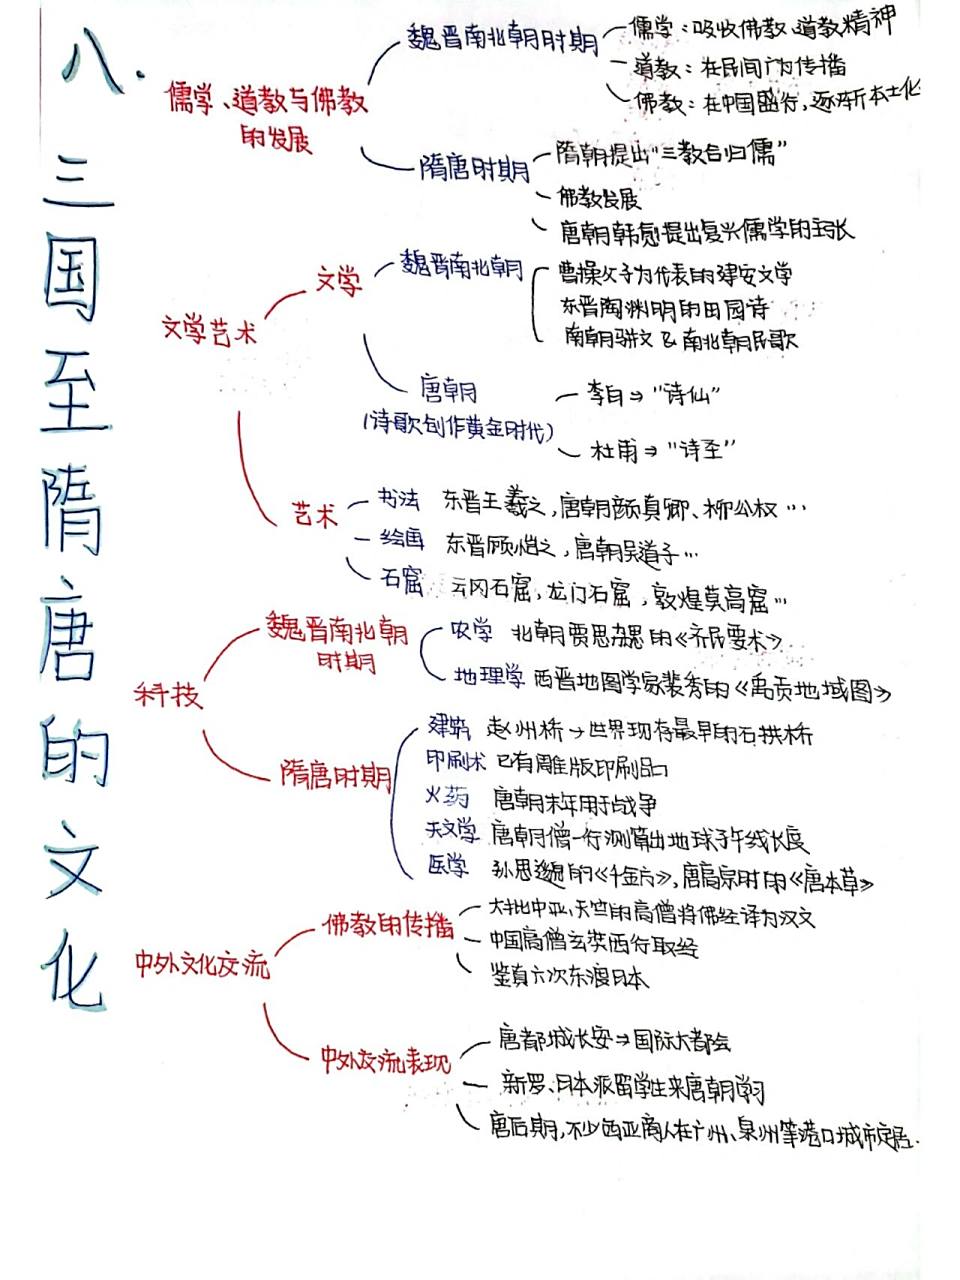 八.三国至隋唐的文化
儒学、道教与佛教
的发展
魏晋南北朝时期
儒学：吸收佛教、道教精神
道教：在民间广为传播
佛教：在中国盛行，逐渐本土化
隋唐时期
隋朝提出“三教合归儒”
佛教发展
唐朝韩愈提出复兴儒学的主张
文学艺术
文学
魏晋南北朝
曹操父子为代表的建安文学
东晋陶渊明的田园诗
南朝骈文&南北朝民歌
唐朝
(诗歌创作黄金时代)
李白⇒“诗仙”
杜甫⇒“诗圣”
艺术
书法 东晋王羲之，唐朝颜真卿、柳公权…
绘画 东晋顾恺之，唐朝吴道子…
石窟 云冈石窟，龙门石窟，敦煌莫高窟…
科技
魏晋南北朝
时期
农学 北朝贾思勰的《齐民要术》
地理学 西晋地图学家裴秀的《禹贡地域图》
隋唐时期
建筑 赵州桥→世界现存最早的石拱桥
印刷术 已有雕版印刷品
火药 唐朝末年用于战争
天文学 唐朝僧一行测算出地球子午线长度
医学 孙思邈的《千金方》，唐高宗时的《唐本草》
中外文化交流
佛教的传播
大批中亚、天竺的高僧将佛经译为汉文
中国高僧玄奘西行取经
鉴真六次东渡日本
中外交流表现
唐都城长安→国际大都会
新罗、日本派留学生来唐朝学习
唐后期，不少西亚商人在广州、泉州等港口城市定居.